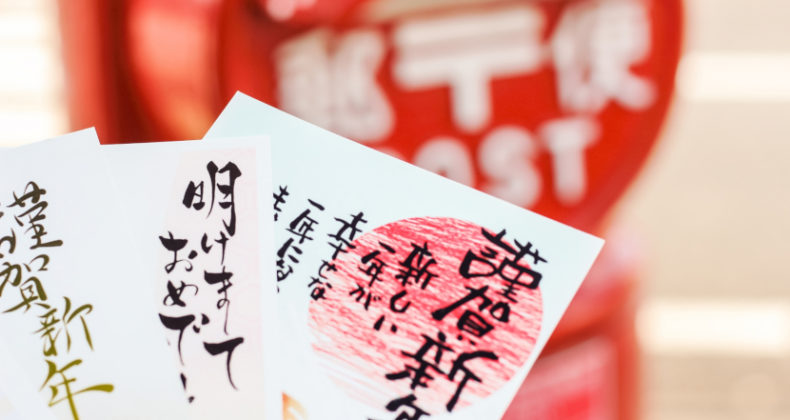 郵〒便
POST
謹賀新年
明けまして
おめで
謹賀新年
新しい
一年が
幸せな
一年に